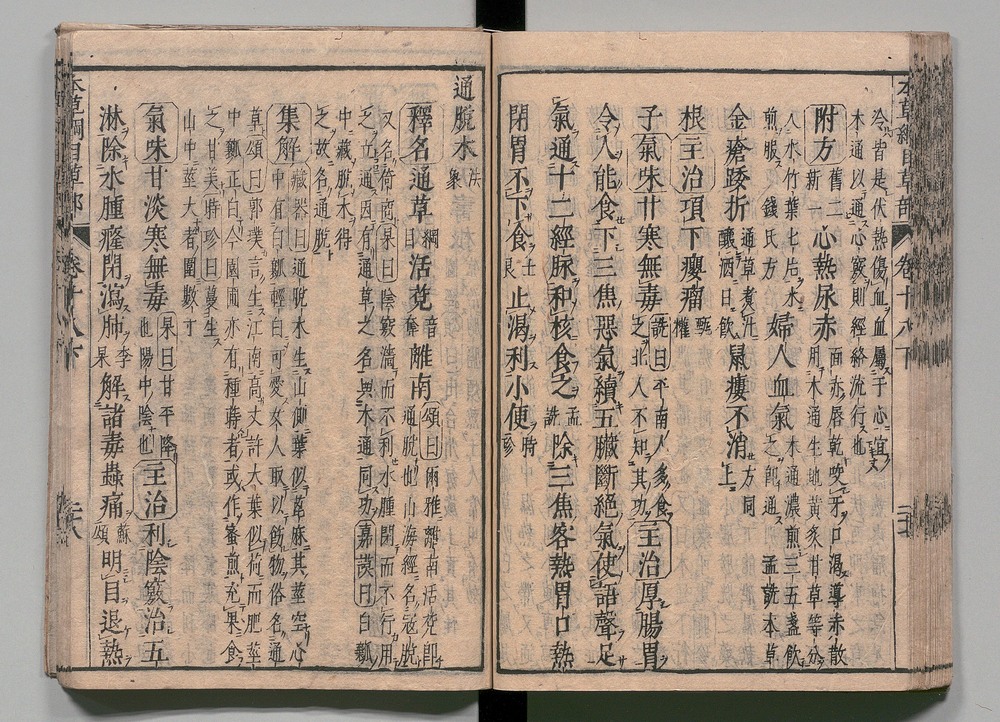 冷皆是伏熱傷血血屬于心宜
木通以通心竅則經絡流行也
附方 舊二新一 心熱尿赤 面赤唇乾咬牙口渴導赤散用木通生地黃炙甘草等分
入水竹葉七片水煎服錢氏方 婦人血氣 木通濃煎三五盞飲之即通孟詵本草
金瘡踒折 通草煮汁釀酒日飲 鼠瘻不消 方同上
根 主治 項下癭瘤 甄權
子 氣味 甘寒無毒 詵曰平南人多食之北人不知其功 主治 厚腸胃
令人能食下三焦惡氣續五臟斷絕氣使語聲足
氣通十二經脉和核食之 孟詵 除三焦客熱胃口熱
閉胃不下食 士良 止渴利小便 時珍
通脫木
釋名 通草 綱目 活莌 音奪 離南 頌曰爾雅離南活莌即通脫也山海經名冦脫
又名倚商杲曰陰竅濇而不利水腫閉而不行用
之立通因有通草之名與木通同功嘉謨曰白瓤
中藏脫木得之故名通脫
集解 藏器曰通脫木生山側葉似蓖麻其莖空心中有白瓤輕白可愛女人取以飾物俗名通
草頌曰郭璞言生江南高丈許大葉似荷而肥莖
中瓤正白今園圃亦有種蒔者或作蜜煎充果食
之甘美時珍曰蔓生
山中莖大者圍數寸
氣味 甘淡寒無毒 杲曰甘平降也陽中陰也 主治 利陰竅治五
淋除水腫癃閉瀉肺 李杲 解諸毒蟲痛 蘇頌 明目退熱
本草綱目草部 卷十八下
本草綱目草部 卷十八下 二十八